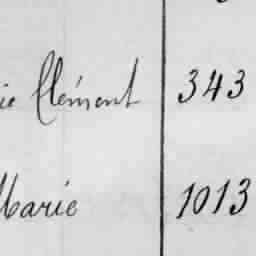 ie Clément 343
Marie 1013